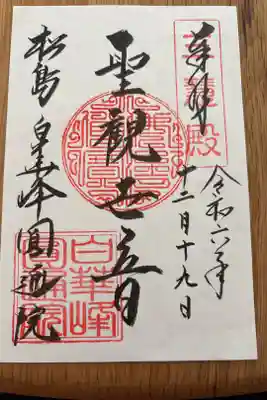 奉拝
令和六年
十二月十九日
聖觀世音
松島 白華峰圓通院
白華峰
圓通院